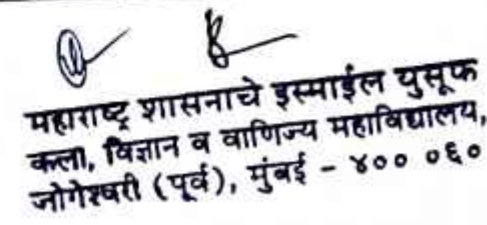 महाराष्ट्र शासनाचे इस्माईल युसूफ
कला, विज्ञान व वाणिज्य महाविद्यालय,
जोगेश्वरी (पूर्व), मुंबई - ४०० ०६०